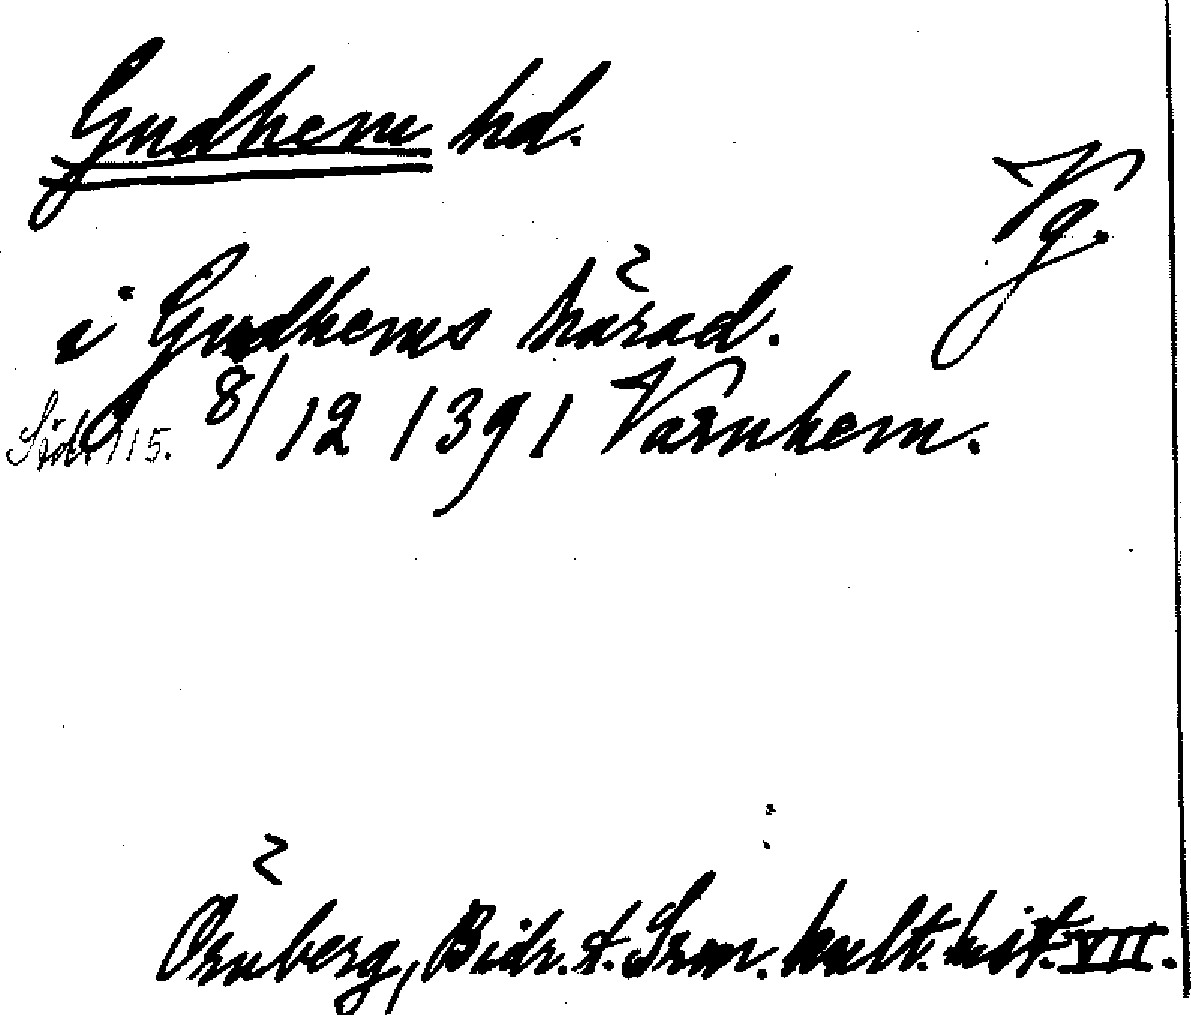 Gudhem hd.
Vg.
i Gudhems härad.
Sid. 115. 8/12 1391 Varnhem.
Örnberg, Bidr. t. Srm. kult. hist. VII.